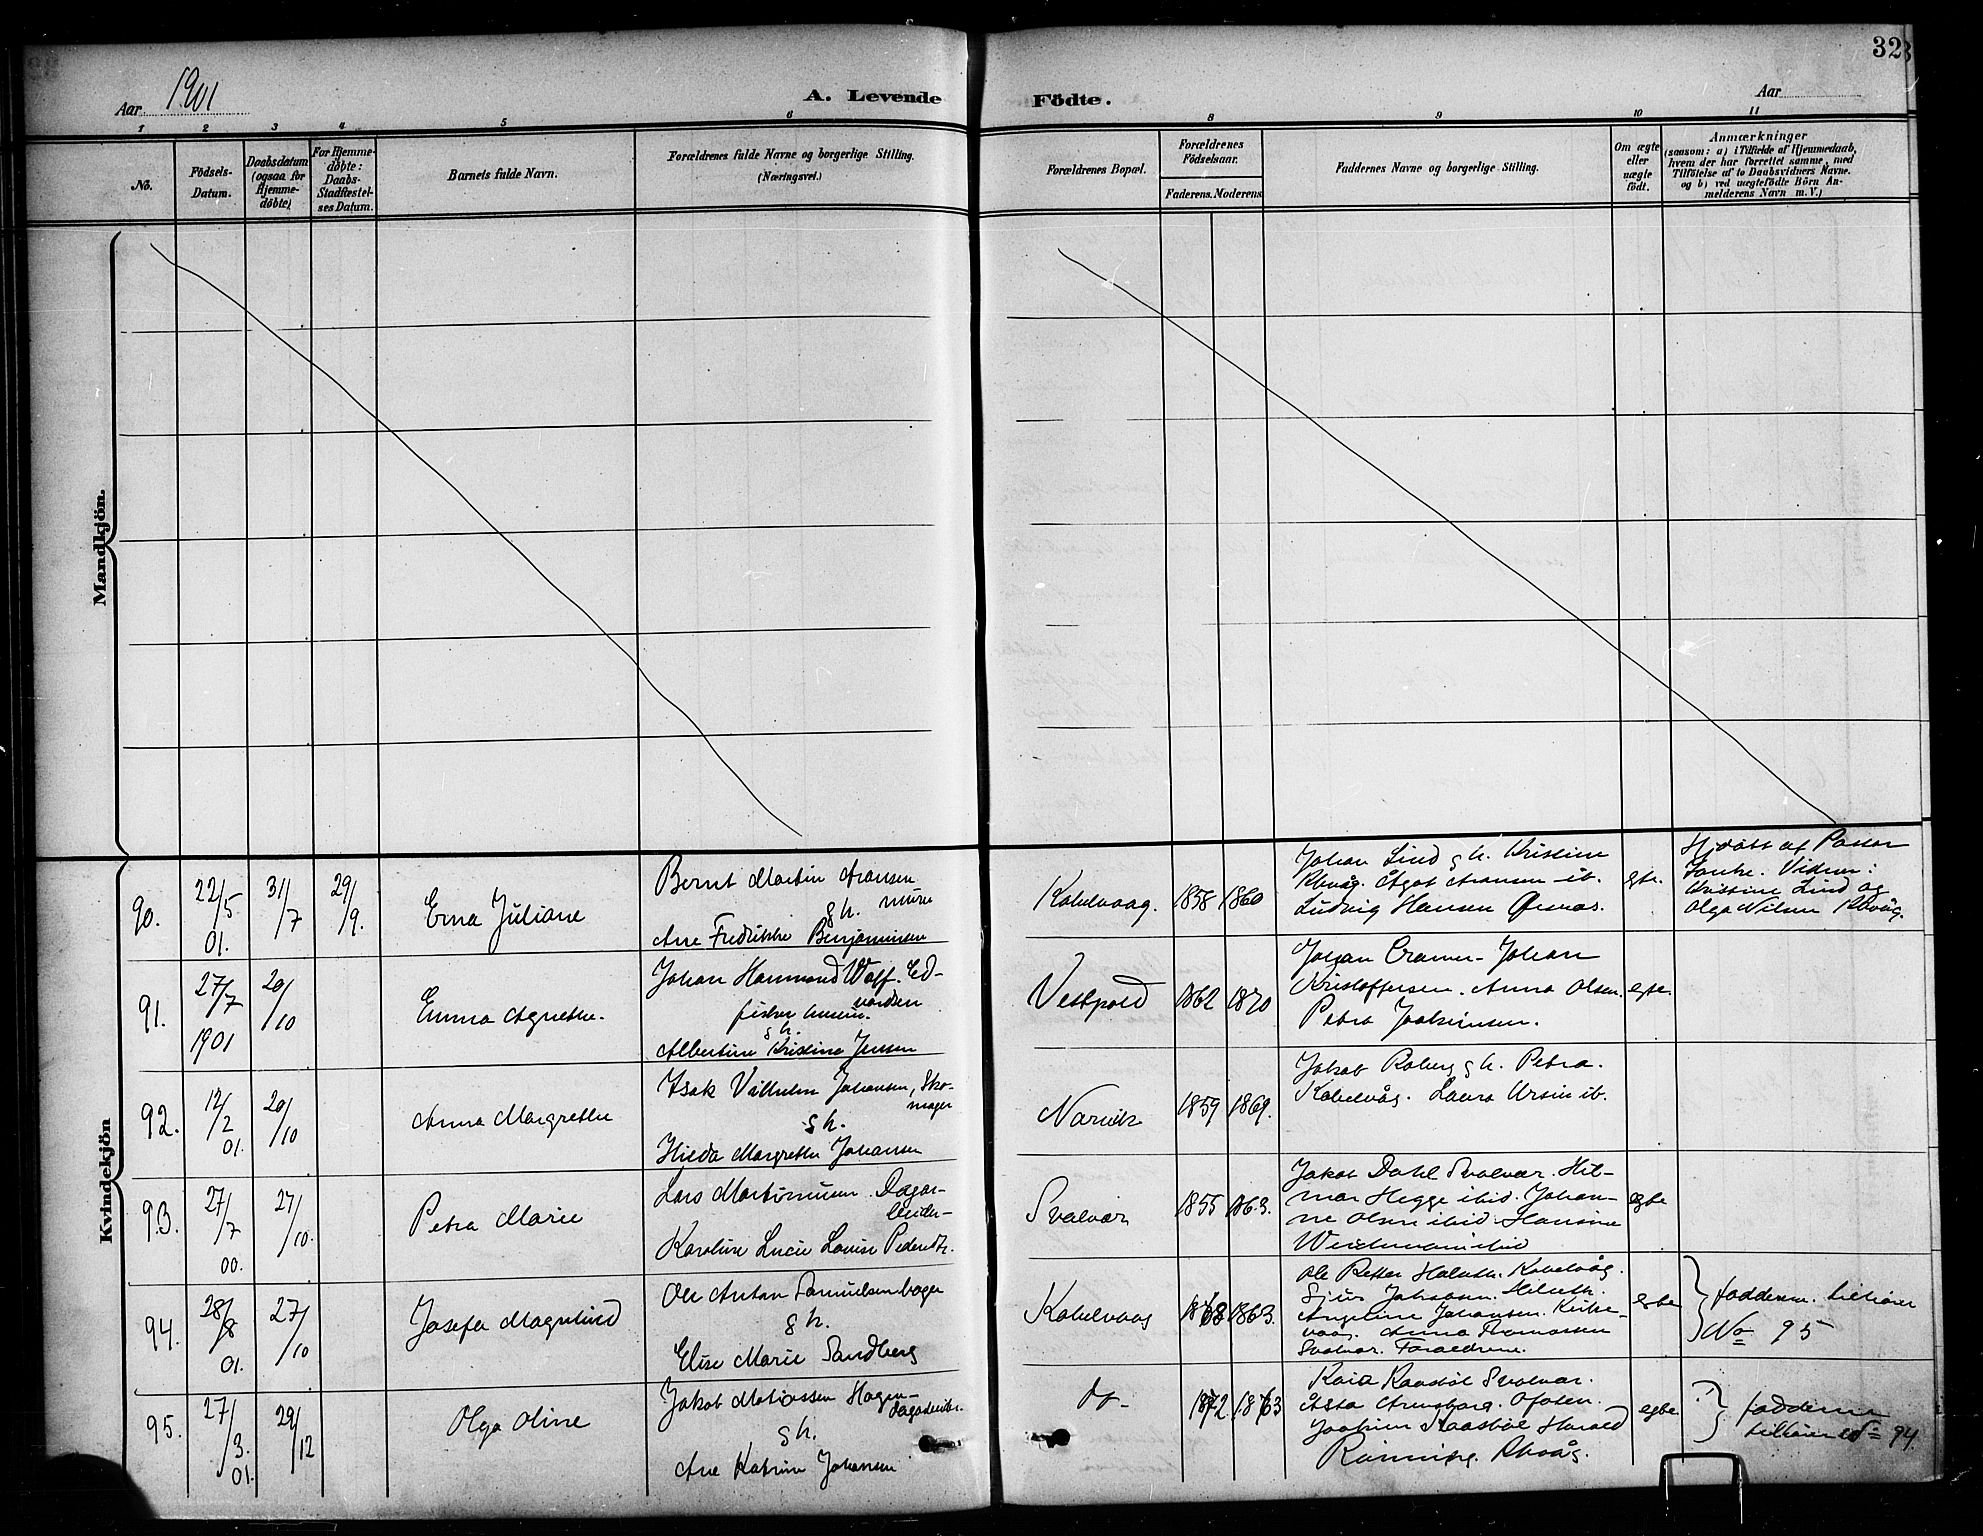 32
Aar 1901
A. Levende
Födte.
Aar
1 2 3 4 5 6 8 9 10 11
No.
Födsels-
Datum.
Daabsdatum
(ogsaa for
Hjemme-
döbte)
For Hjemme-
döbte:
Daabs-
Stadfæstel-
ses Datum.
Barnets fulde Navn.
Forældrenes fulde Navne og borgerlige Stilling.
(Næringsvei.)
Forældrenes Bopæl.
Forældrenes
Födselsaar.
Faderens. Moderens
Faddernes Navne og borgerlige Stilling.
Om ægte
eller
uægte
födt.
Anmærkninger
(saasom: a) i Tilfælde af Hjemmedaab,
hvem der har forrettet samme, med
Tilföielse af to Daabsvidners Navne.
og b) ved uægtefödte Börn An-
melderens Navn m.V.)
Mandkjön.
Kvindekjön
90.
22/5
01.
31/7
29/9.
Erna Juliane
Bernt Martin Aronsen
gh. murer
Ane Fredrikke Benjaminsen
Kabelvaag.
1858 1860
Johan Lind gh. Kristine
Kbvåg. Ågot Aronsen ib.
Ludvig Hansen Ørsnes.
egte.
Hjdøbt af Pastor
Vidner:
Kristine Lind og
Olga Nilsen Kbvåg.
91.
27/7
1901
20/10
Emma Agnethe.
Johan Hammond Wolf. Ed-
vardsen
gh.
Albertine Kristine Jensen
Vestpold
1862 1870
Johan Cramer. Johan
Kristoffersen. Anna Olsen.
Petra Joakimsen.
egte.
92.
12/2
01.
20/10
Anna Margrethe
Isak Vilhelm Johansen, Sko-
mager
gh.
Hilda Margrethe Johansen
Narvik
1859 1869.
Jakob Roberg gh. Petra.
Kabelvåg. Laura Ursin ib.
93.
27/7
00.
27/10.
Petra Marie
Lars Martinussen. Dagar-
beider-
Karoline Lucie Louise Pedersdtr.
Svolvær
1855 1863.
Jakob Dahl Svolvær. Hil-
mar Hegge ibid. Johan-
ne Olsen ibid. Hansine
ibid
egte
94.
28/8
01.
27/10
Josefa Magnhild
Ole Anton Samuelsen bager
gh.
Elise Marie Sandberg
Kabelvaag
1868 1863.
Ole Petter Kabelvåg.
Angeline Johansen. Kirke-
vaag. Anna Thomassen
Svolvær. Forældrene.
egte
fadderne tilhører
No 95
95.
27/3.
01.
29/12
Olga Oline
Jakob Matiassen Hagen-
dagarbeider.
gh.
Ane Katrine Johansen
do-
1872 1863
Kaia Raasböl Svolvær.
Åsta Arnsberg. Ofoten.
Joakim Raasböl Harald
Rönning. Kbvåg.
egte
fadderne
tilhører No 94.